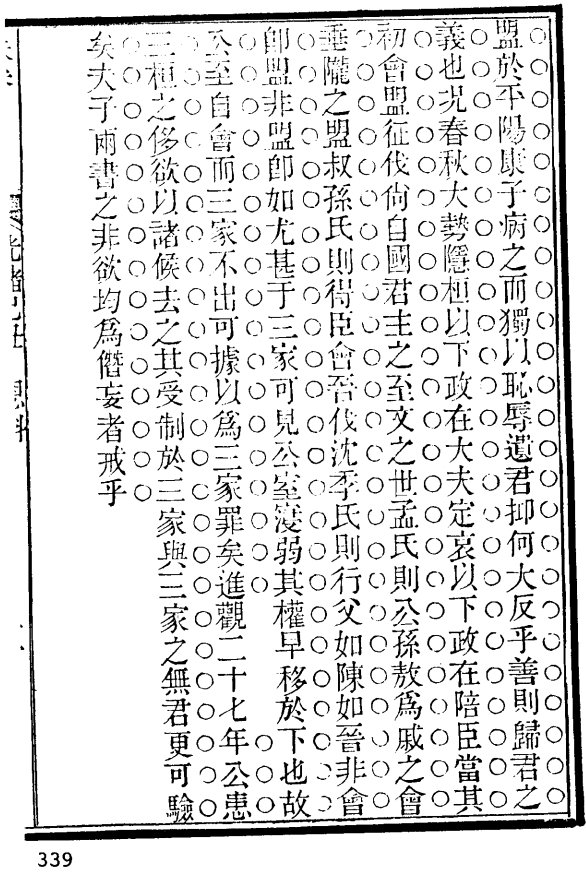 盟於平陽康子病之而獨以恥辱遺君抑何大反乎善則歸君之
義也况春秋大勢隱桓以下政在大夫定哀以下政在陪臣當其
初會盟征伐尙自國君主之至文之世孟氏則公孫敖爲戚之會
垂隴之盟叔孫氏則得臣會晉伐沈季氏則行父如陳如晉非會
卽盟非盟卽如尤甚于三家可見公室寖弱其權早移於下也故
公至自會而三家不出可據以爲三家罪矣進觀二十七年公患
三桓之侈欲以諸侯去之其受制於三家與三家之無君更可驗
矣夫子兩書之非欲均爲僭妄者戒乎
339